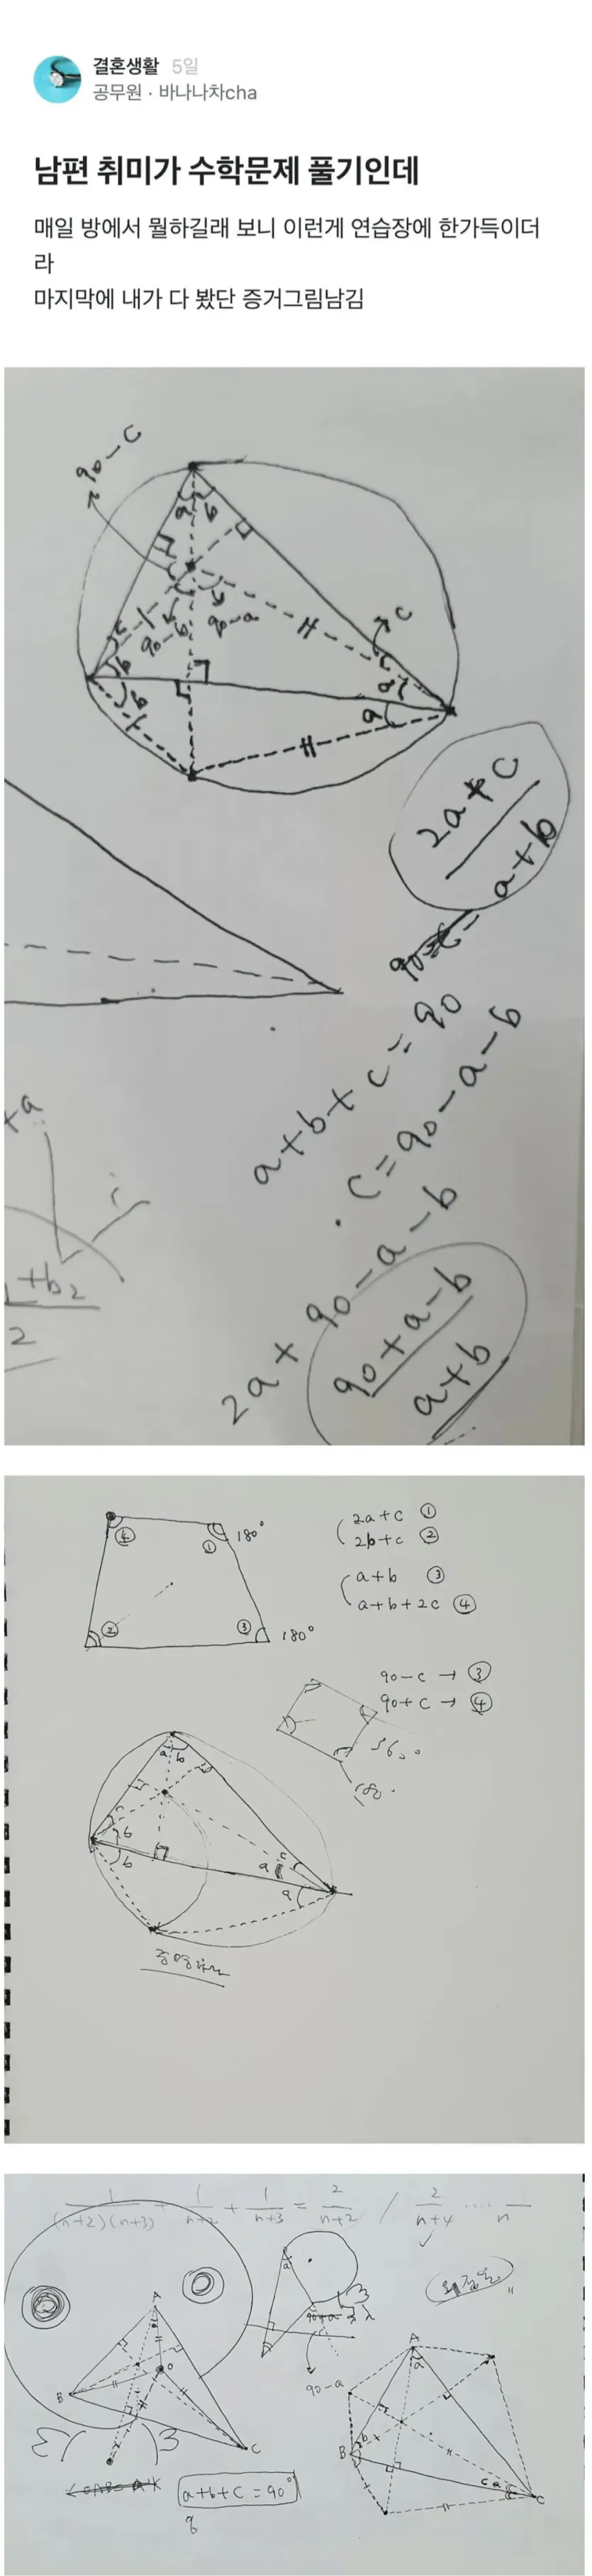 결혼생활 5일
공무원 · 바나나차cha
남편 취미가 수학문제 풀기인데
매일 방에서 뭘하길래 보니 이런게 연습장에 한가득이더
라
마지막에 내가 다 봤단 증거그림남김
90-C
a b
c
90-b 90-a
b
b
c
a
a
2a+C
a+b
a+b+c=90
C=90-a-b
2a+90-a-b
90+a-b
a+b
+a
+b2
2
④ ① 180°
② ③ 180°
2a+c ①
2b+c ②
a+b ③
a+b+2c ④
90-c → ③
90+c → ④
360°
180°
a b
c
b
b
c
a
a
1/(n+2)(n+3) + 1/n+2 + 1/n+3 = 2/n+2 / 2/n+4 ···· /n
A
B
C
O
a
90-a
a+b+c=90°
A
a
B
b
c a
C